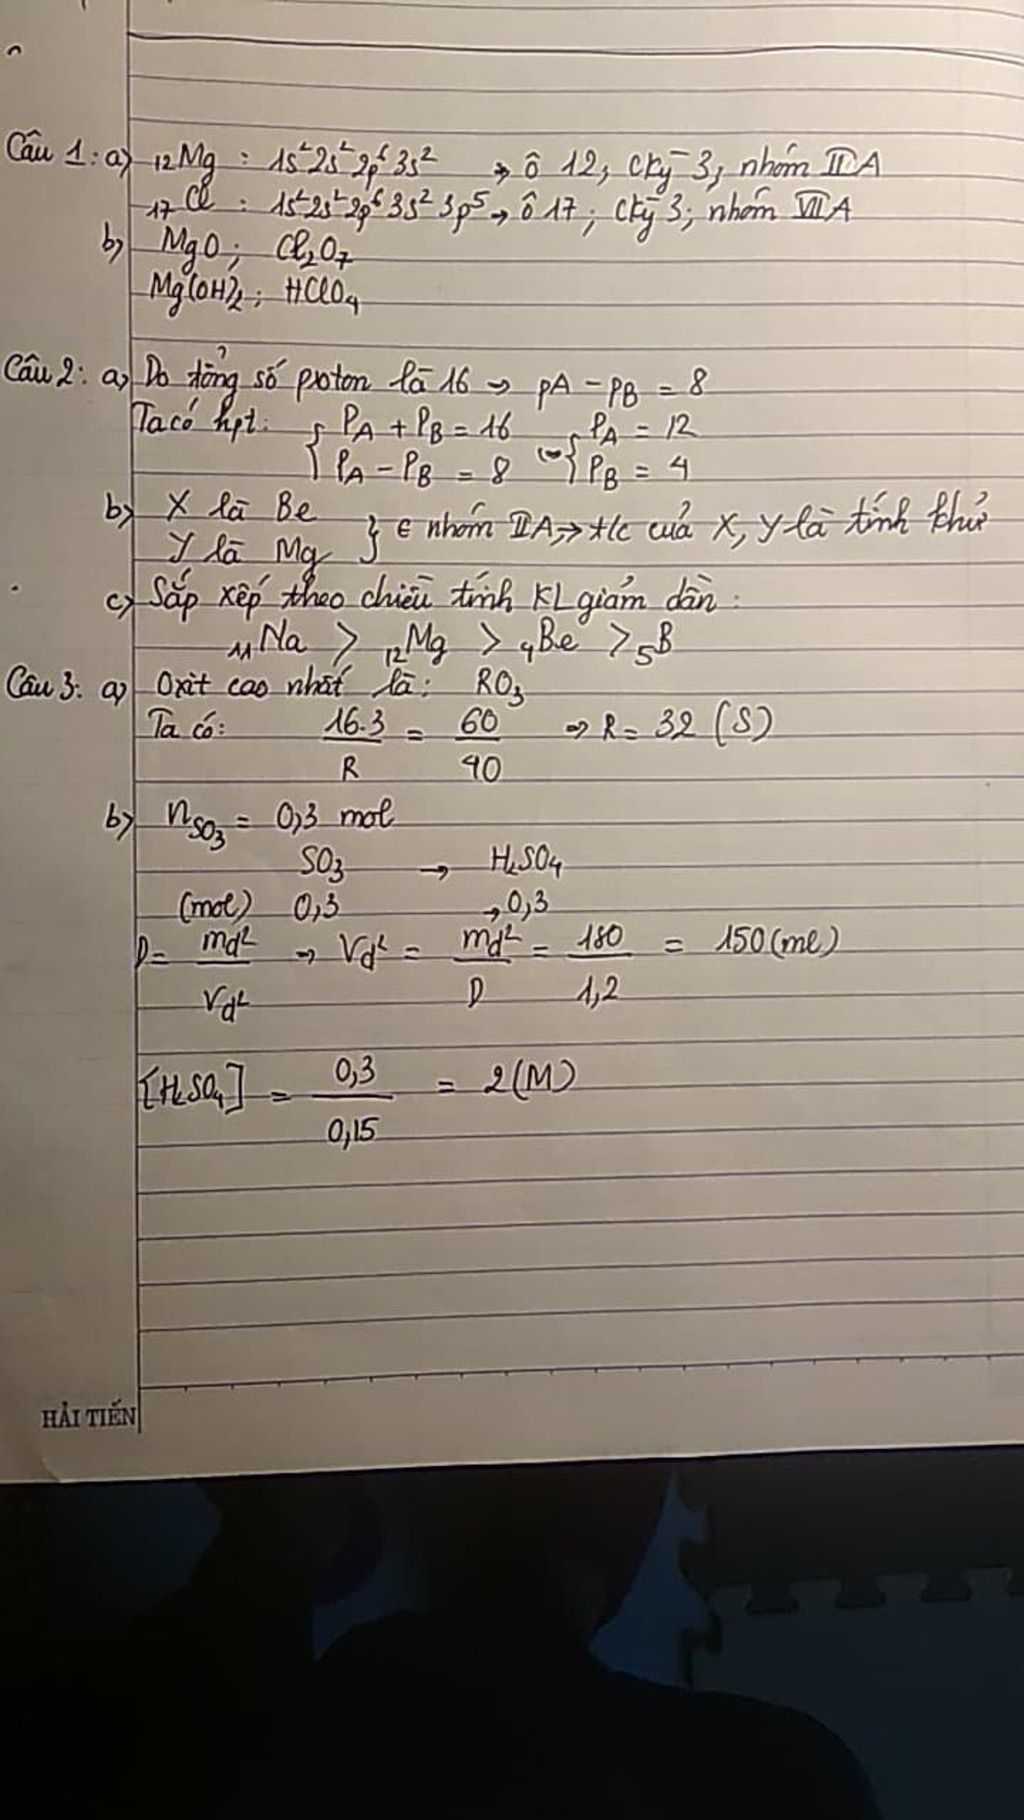 Câu 1: a) ₁₂Mg : 1s²2s²2p⁶3s² → ô 12, Ckỳ 3, nhóm IIA
₁₇Cl : 1s²2s²2p⁶3s²3p⁵ → ô 17; Ckỳ 3; nhóm VIIA
b) MgO; Cl₂O₇
Mg(OH)₂; HClO₄
Câu 2: a) Do tổng số proton là 16 → pA - pB = 8
Ta có hpt: { PA + PB = 16 { PA = 12
{ PA - PB = 8 (=> { PB = 4
b) X là Be
Y là Mg } ∈ nhóm IIA, → t/c của X, Y là tính khử
c) Sắp xếp theo chiều tính KL giảm dần:
₁₁Na > ₁₂Mg > ₄Be > ₅B
Câu 3: a) Oxit cao nhất là: RO₃
Ta có: 16.3/R = 60/40 => R = 32 (S)
b) nSO₃ = 0,3 mol
SO₃ → H₂SO₄
(mol) 0,3 → 0,3
D = md²/Vd² → Vd² = md²/D = 180/1,2 = 150 (ml)
[H₂SO₄] = 0,3/0,15 = 2 (M)
HẢI TIẾN